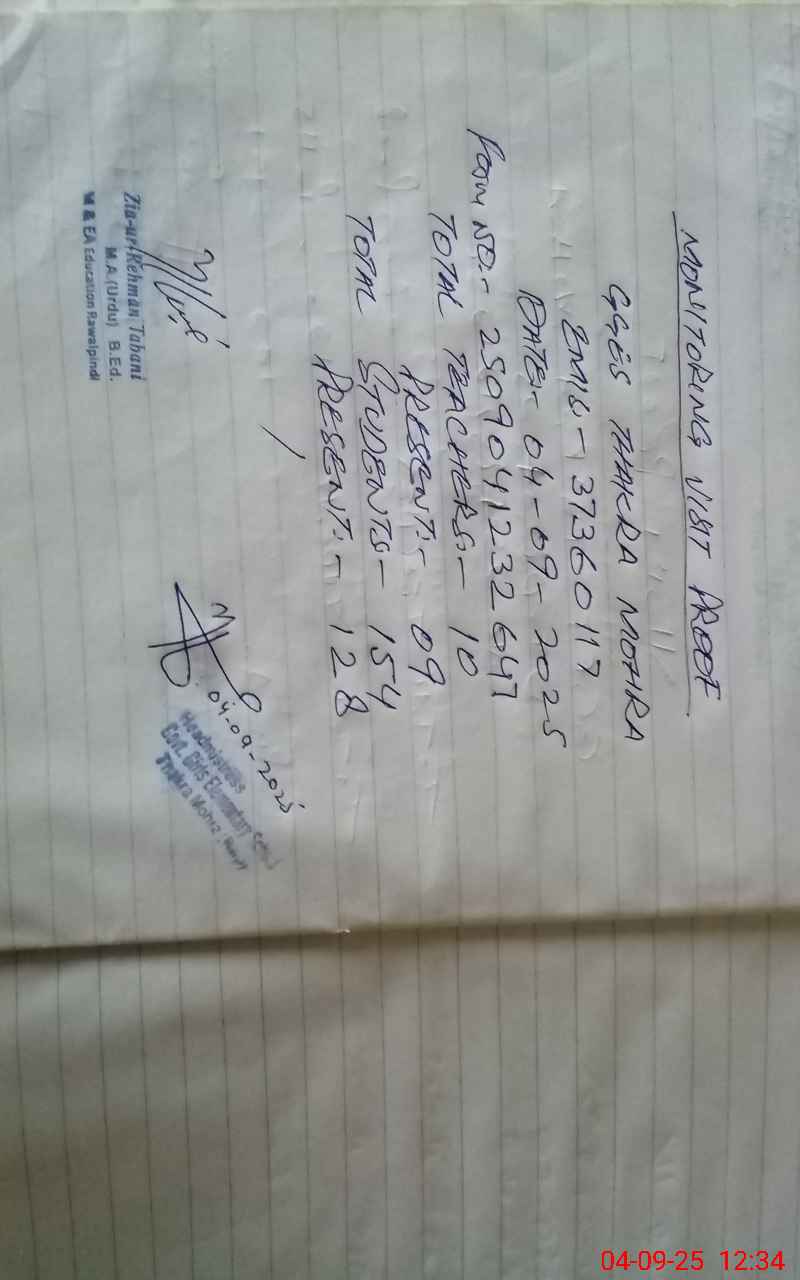 MONITORING VISIT PROOF
GGES THAKRA MOHRA
EMIS - 37360117
DATE:- 04-09-2025
Form NO:- 2509041232647
TOTAL TEACHERS:- 10
PRESENT:- 09
TOTAL STUDENTS - 154
PRESENT:- 128
04-09-2025
Zia-ur-Rehman Tabani
M.A.(Urdu) B.Ed.
M & EA Education Rawalpindi
Headmistress
Govt. Girls Elementary School
Thakra Mohra (Rwp)
04-09-25 12:34